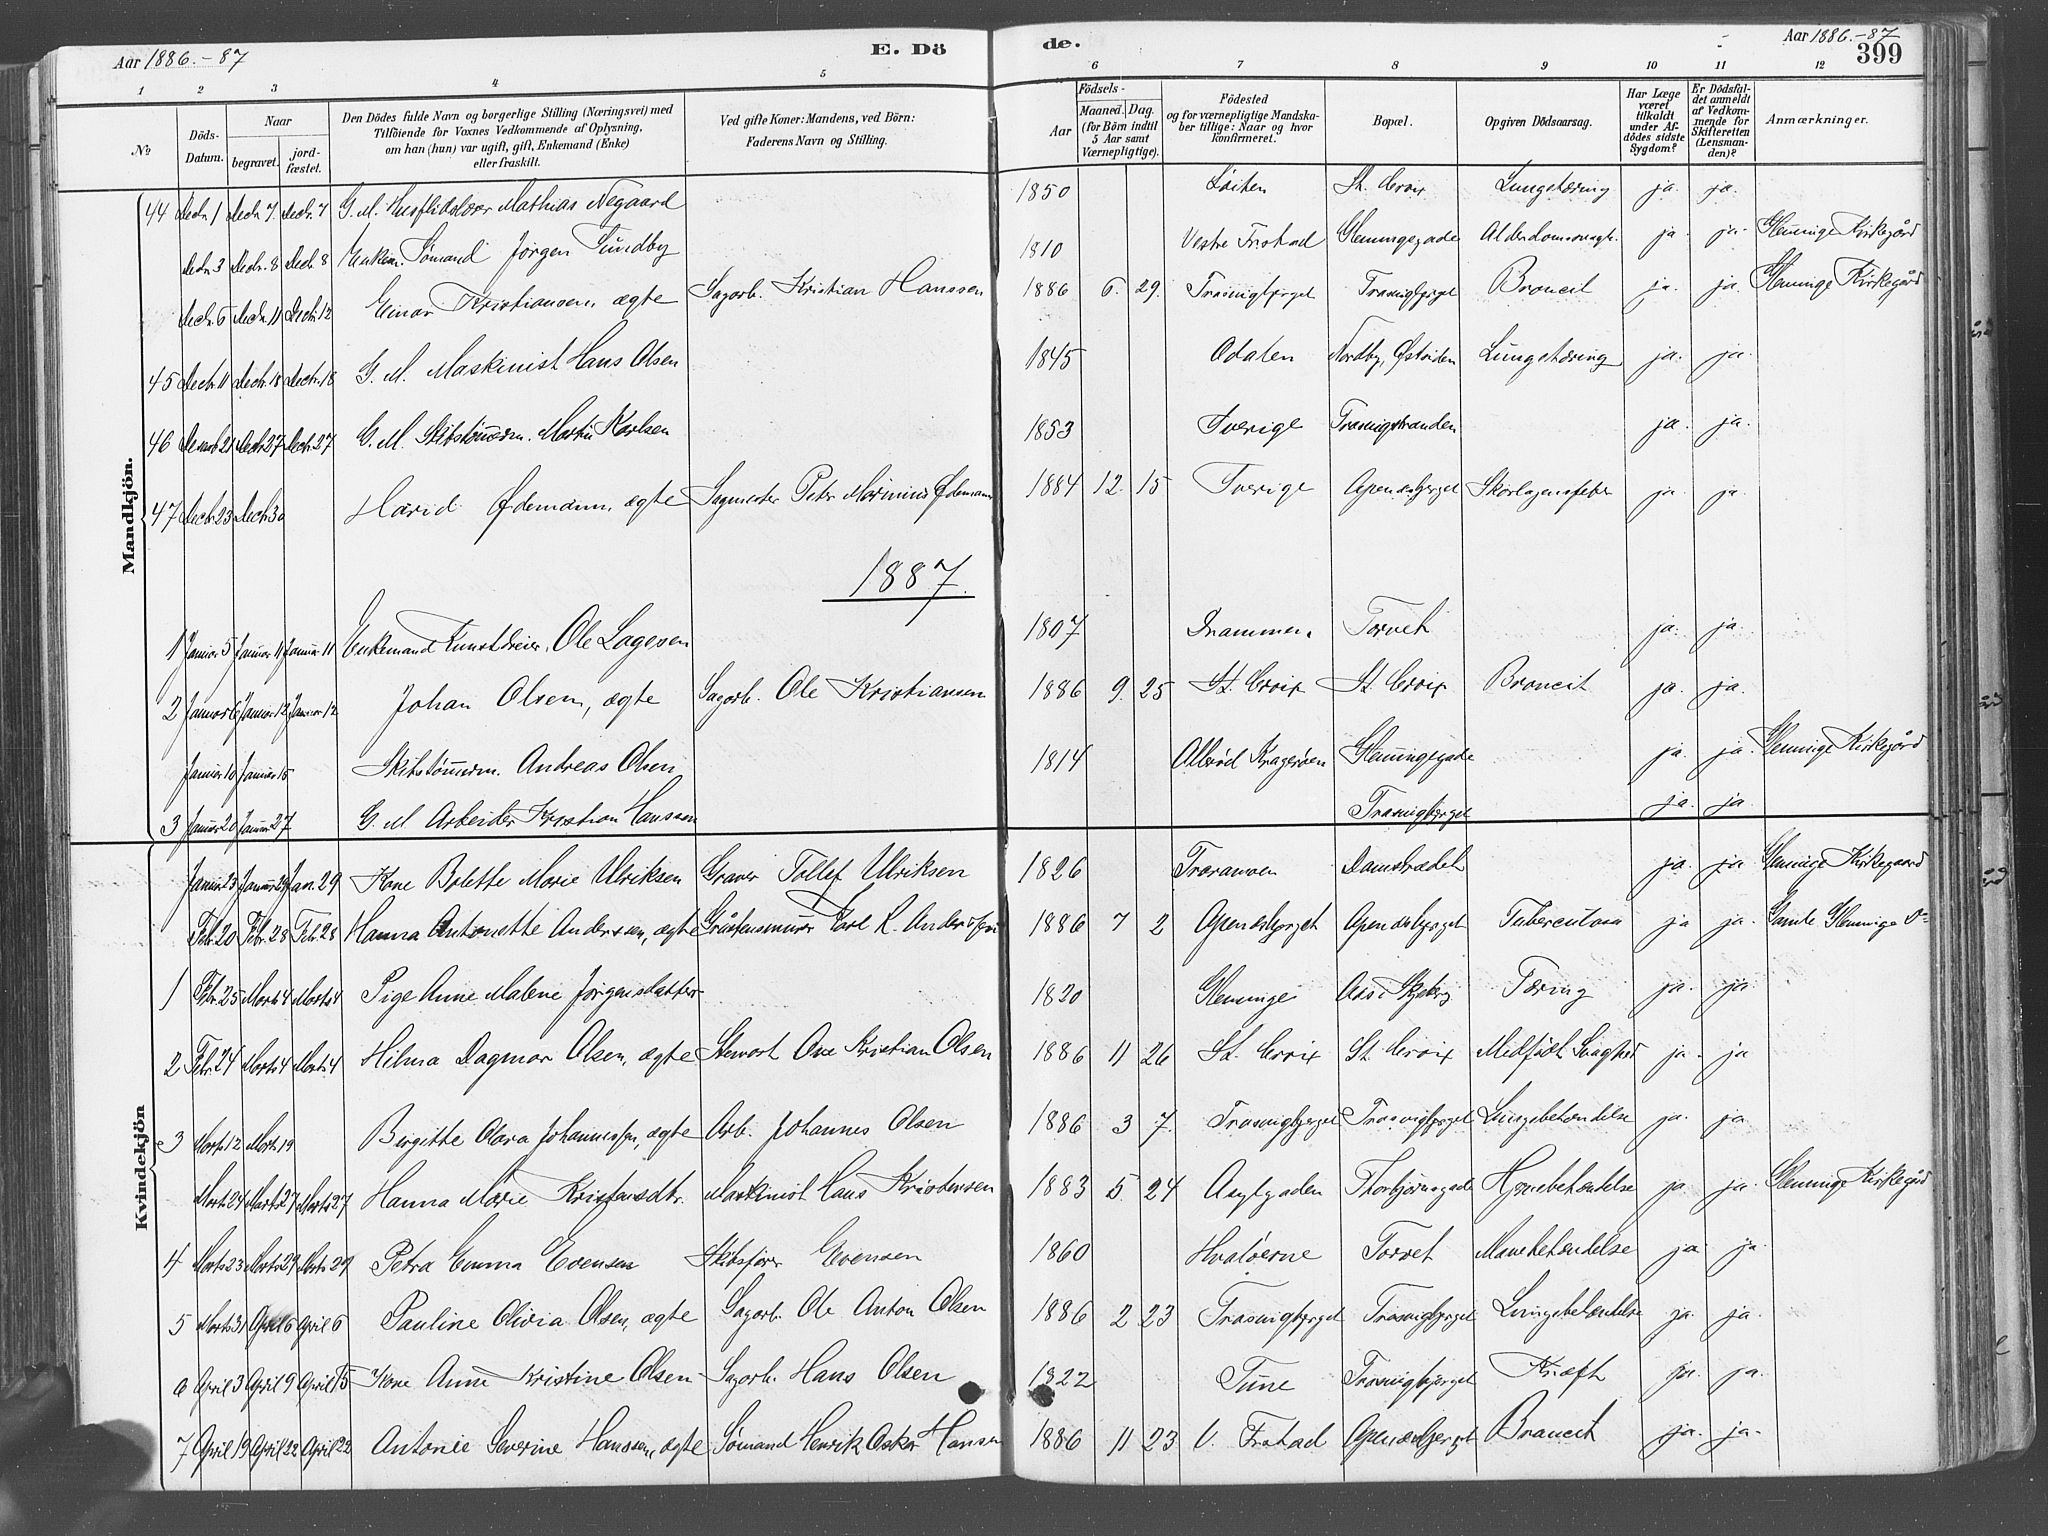 Aar 1886.-87 E. Döde. Aar 1886.-87
399
1 2 3 4 5 6 7 8 9 10 11 12
No
Döds-Datum.
Naar
begravet. jordfæstet.
Den Dödes fulde Navn og borgerlige Stilling (Næringsvei) med
Tilföiende for Voxnes Vedkommende af Oplysning,
om han (hun) var ugift, gift, Enkemand (Enke)
eller fraskilt.
Ved gifte Koner: Mandens, ved Börn:
Faderens Navn og Stilling.
Aar
Födsels-
Maaned. Dag.
(for Börn indtil
5 Aar samt
Værnepligtige).
Födested
og for værnepligtige Mandskaber tillige: Naar og hvor
konfirmeret.
Bopæl.
Opgiven Dödsaarsag.
Har Læge
været
tilkaldt
under Afdödes sidste
Sygdom?
Er Dödsfaldet anmeldt
af Vedkommende for
Skifteretten
(Lensmanden)?
Anmærkninger.
Mandkjön.
44 Decbr. 1 Decbr. 7. Decbr. 7 G. M. Husflidslærer Mathias Negaard 1850 Löiten St. Croix Lungetæring ja. ja.
Decbr. 3 Decbr. 8 Decbr. 8 Enkem. Sömand Jörgen Sundby 1810 Vestre Fristad Glemmegade ja. ja. Glemmige Kirkegård
Decbr. 6 Decbr. 11 Decbr. 12 Einar Kristiansen, ægte Sagarb. Kristian Hanssen 1886 6. 29. Trosvigbjerget Trosvigbjerget Broncit ja. ja. Glemmige Kirkegård
45 Decbr. 11 Decbr. 18 Decbr. 18 G. M. Maskinist Hans Olsen 1845 Odalen Nordby, Østsiden Lungetæring ja. ja.
46 Decemb 21 Decbr 27 Decbr. 27 G. M. Skibstömm. Martin Karlsen 1853 Sverige Trosvigstranden ja. ja.
47 Decbr. 23 Decbr. 30 Harid Ødemann, ægte Sagmester Peter Marinius Ødemann 1884 12. 15 Sverige Apenæsbjerget Skarlagensfeber ja. ja.
1887.
1 Januar 5 Januar 11 Januar 11 Enkemand Kunstdreier, Ole Lagesen 1807 Drammen. Torvet ja. ja.
2 Januar 6 Januar 12 Januar 12 Johan Olsen, ægte Sagarb. Ole Kristiansen 1886 9. 25 St. Croix St. Croix Broncit ja. ja.
Januar 10 Januar 15 Skibstömm. Andreas Olsen 1814 Kragerøen Glemmigegade ja. ja. Glemmige Kirkegård
3 Januar 20 Januar 27 G. M. Arbeider Kristian Hanssen Trosvigbjerget ja. ja.
Kvindekjön
Januar 23 Januar 29 Jan. 29 Kone Bolette Marie Ulriksen Graver Tollef Ulriksen 1826 Damstrædet ja. ja. Glemmige Kirkegaard
Febr. 20 Febr. 28 Febr. 28 Hanna Antonette Anderssen, ægte Gråstensmurer Karl R. Anderssen 1886 7 2 Apenæsbjerget Apenæsbjerget Tuberculose ja ja. Gamle Glemmige
1 Febr. 25 Marts 4 Marts 4 Pige Anne Malene Jörgensdatter 1820 Glemmige Aas i Skjeberg Tæring ja. ja.
2 Febr. 24 Marts 4 Marts 4 Hilma Dagmar Olsen, ægte Stewart Kristian Olsen 1886 11 26 St. Croix St. Croix Medfödt Svaghed ja. ja
3 Marts 12 Marts 19 Birgitte Clara Johannessen, ægte Arb. Johannes Olsen 1886 3 7. Trosvigbjerget Trosvigbjerget Lungebetændelse ja. ja
Marts 24 Marts 27 Marts 27 Hanna Marie Kristensdtr. Maskinist Hans Kristensen 1883 5. 24 Asylgaden Thorbjörnsgade Hjernebetændelse ja ja. Glemmige Kirkegård
4 Marts 23 Marts 29 Marts 29 Petra Emma Evensen Skibsförer Evensen 1860 Hvalöerne Torvet Mavebetændelse ja ja.
5 Marts 31 April 6 April 6 Pauline Olivia Olsen, ægte Sagarb. Ole Anton Olsen 1886 2 23 Trosvigbjerget Trosvigbjerget Lungebetændelse ja. ja.
6 April 3 April 9 April 15 Kone Anne Kristine Olsen Sagarb. Hans Olsen 1822 Tune Trosvigbjerget Kræft ja. ja.
7 April 19 April 22 April 22 Antonie Severine Hanssen, ægte Sömand Henrik Oskar Hansen 1886 11 23 V. Fristad Apenæsbjerget Broncit ja. ja.